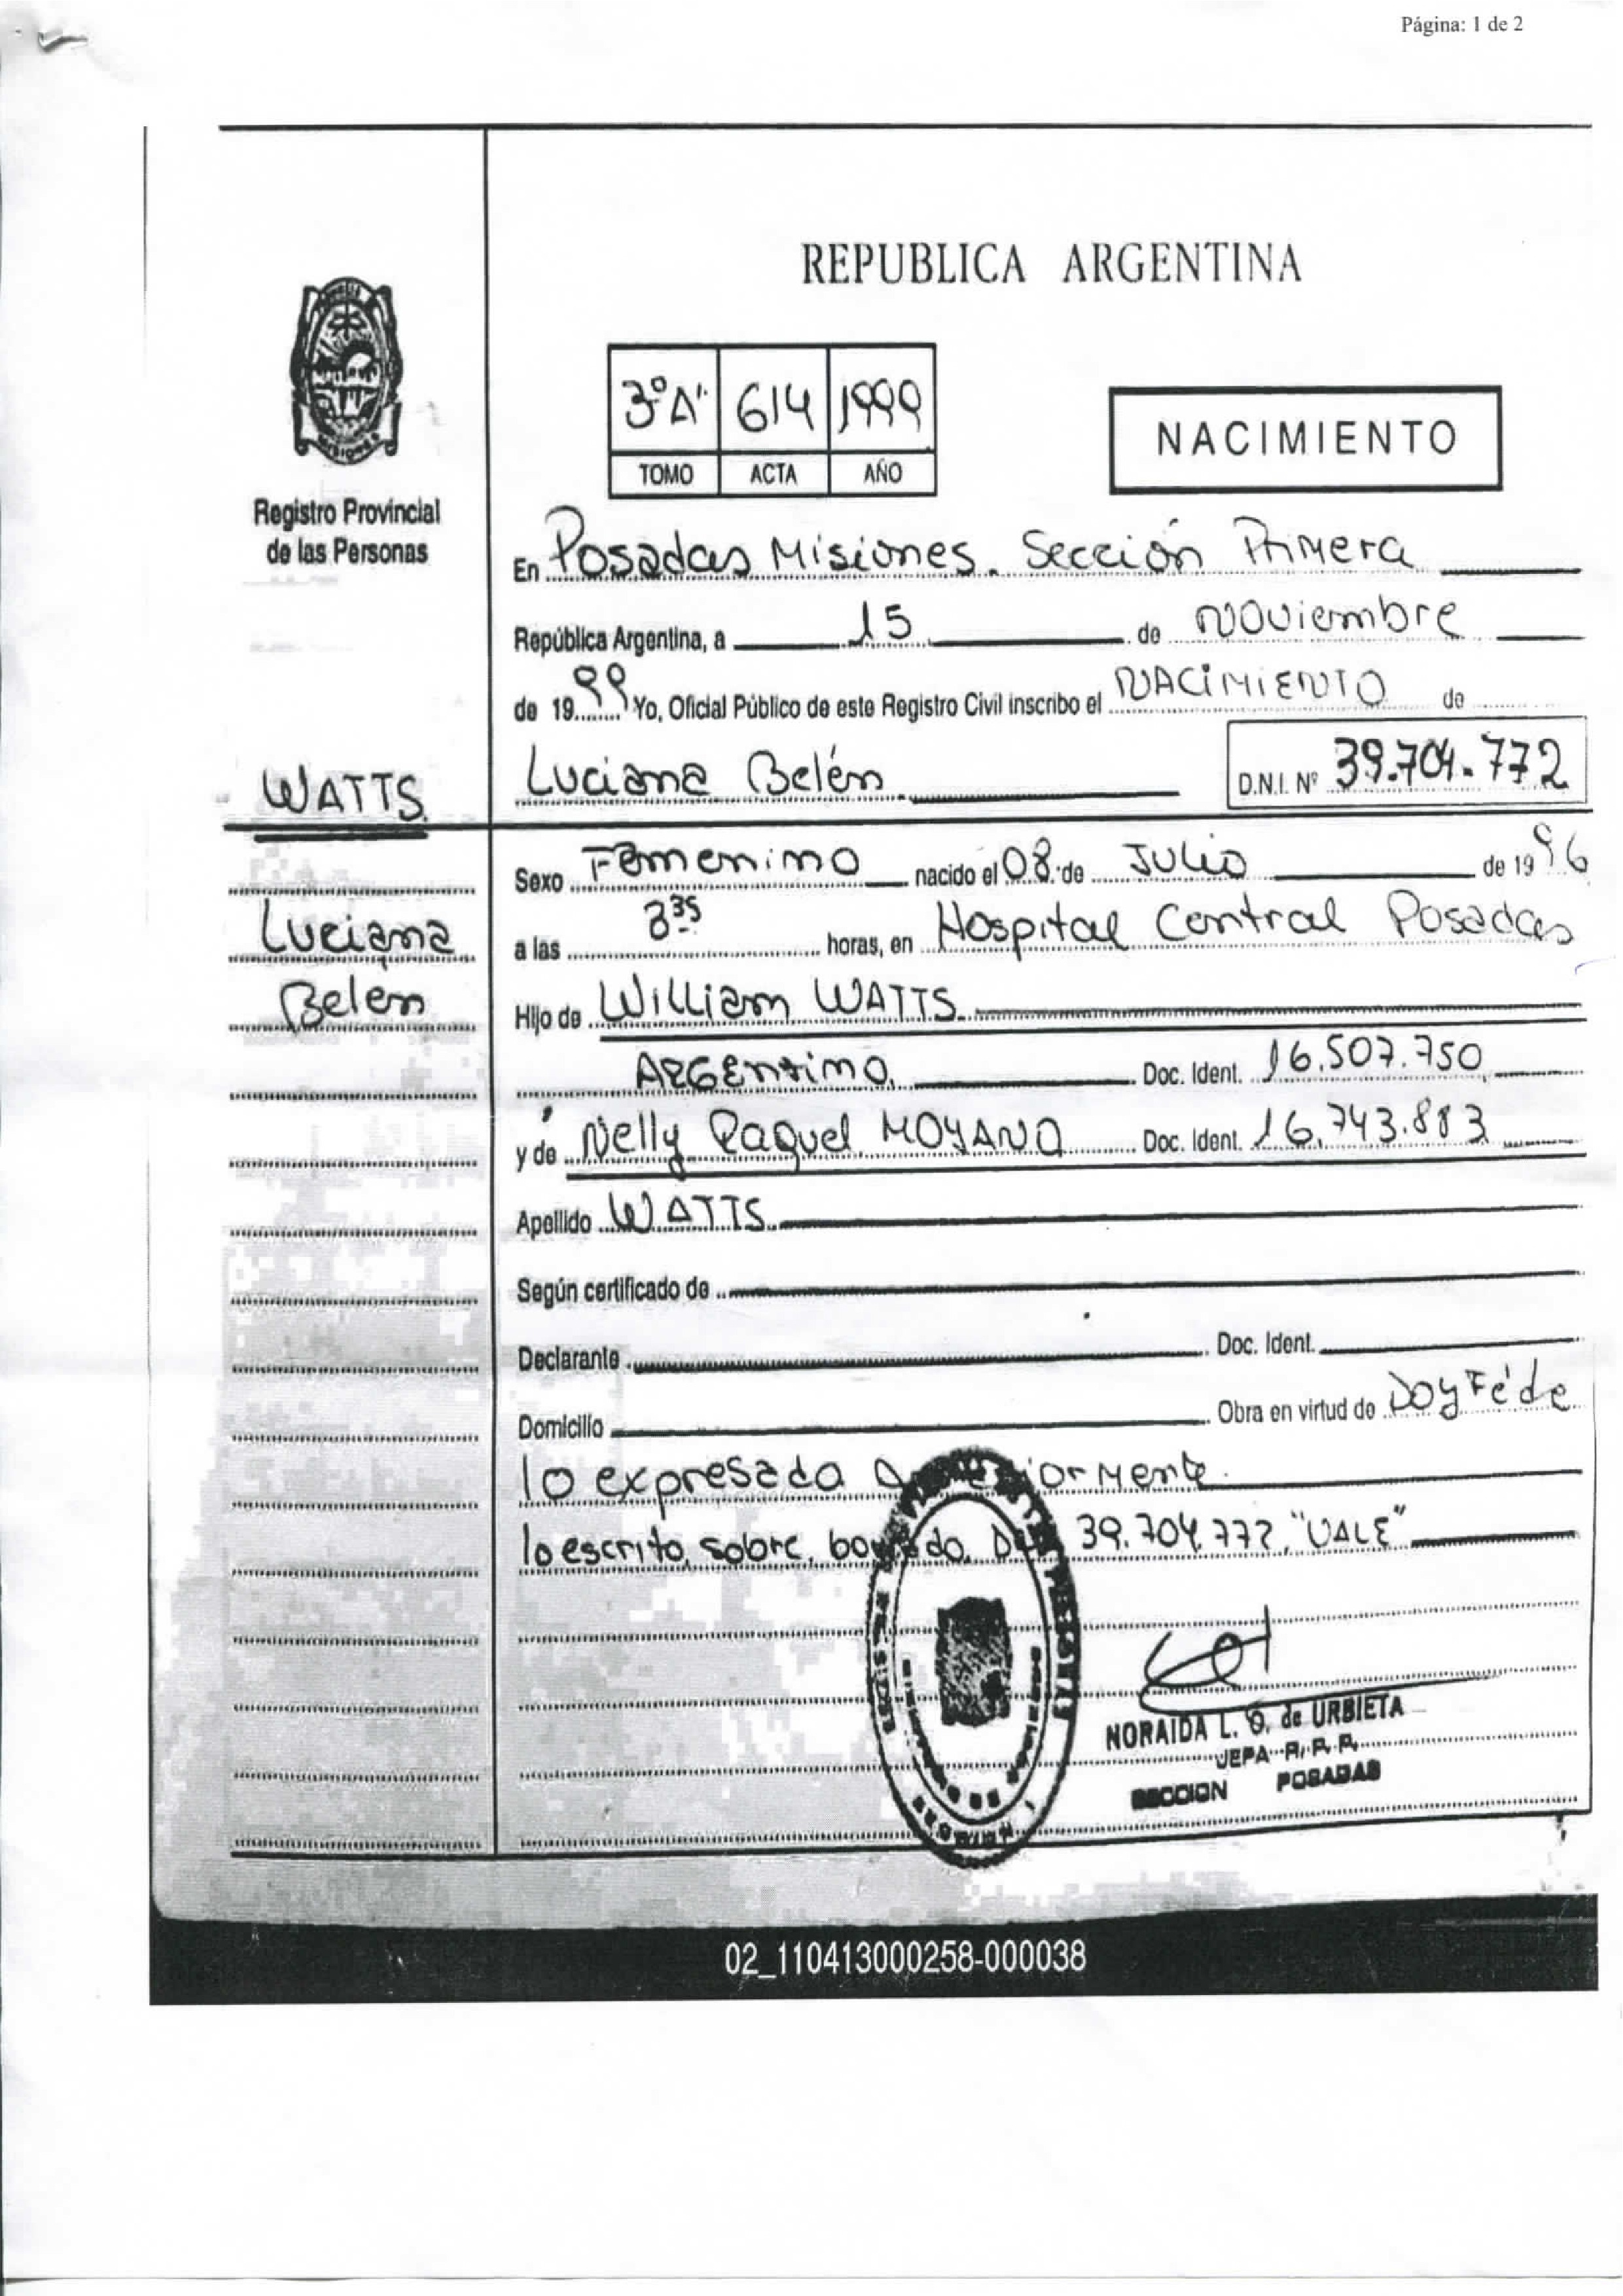 Página: 1 de 2
REPUBLICA ARGENTINA
3º "A" 614 1999
TOMO ACTA AÑO
NACIMIENTO
Registro Provincial
de las Personas
En Posadas Misiones. Sección Primera
República Argentina, a 15 de Noviembre
de 1999 Yo, Oficial Público de este Registro Civil inscribo el NACIMIENTO de
WATTS
Luciana Belén D.N.I. Nº 39.704.772
Sexo Femenino nacido el 08 de Julio de 1996
Luciana
Belen
a las 8 35 horas, en Hospital Central Posadas
Hijo de William WATTS
Argentino. Doc. Ident. 16.507.750
y de Nelly Raquel MOYANO Doc. Ident. 16.743.883
Apellido WATTS
Según certificado de
Declarante Doc. Ident.
Domicilio Obra en virtud de Doy Fé de
lo expresado
lo escrito, sobre, 39.704.772, "VALE"
NORAIDA L. O. de URBIETA
JEFA R. P. P.
SECCION POSADAS
02_110413000258-000038